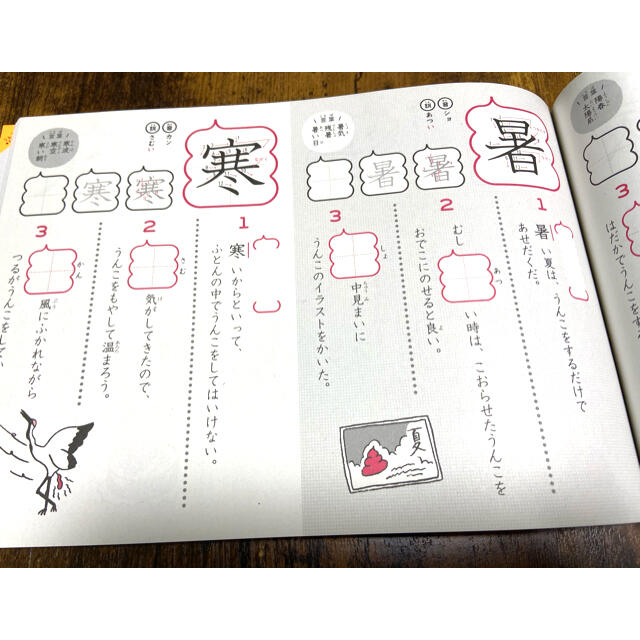 暑
音 ショ
訓 あつい
暑暑
言葉
暑気
残暑
暑い日
1
暑い夏は、うんこをするだけで
あせだくだ。
2
むし
あつ
い時は、こおらせたうんこを
おでこにのせると良い。
3
しょ
中見まいに
うんこのイラストをかいた。
夏
寒
音 カン
訓 さむい
寒寒
言葉
寒波
寒空
寒い朝
1
寒いからといって、
ふとんの中でうんこをしてはいけない。
2
さむ
気がしてきたので、
うんこをもやして温まろう。
3
かん
風にふかれながら
つるがうんこをしてい
言葉
陽春
太陽系
はだかでうんこを